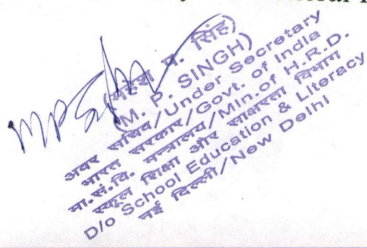 (म. प्र. सिंह)
(M. P. SINGH)
अवर सचिव/Under Secretary
भारत सरकार/Govt. of India
मा.सं.वि. मन्त्रालय/Min.of H.R.D.
स्कूल शिक्षा और साक्षरता विभाग
D/o School Education & Literacy
नई दिल्ली/New Delhi